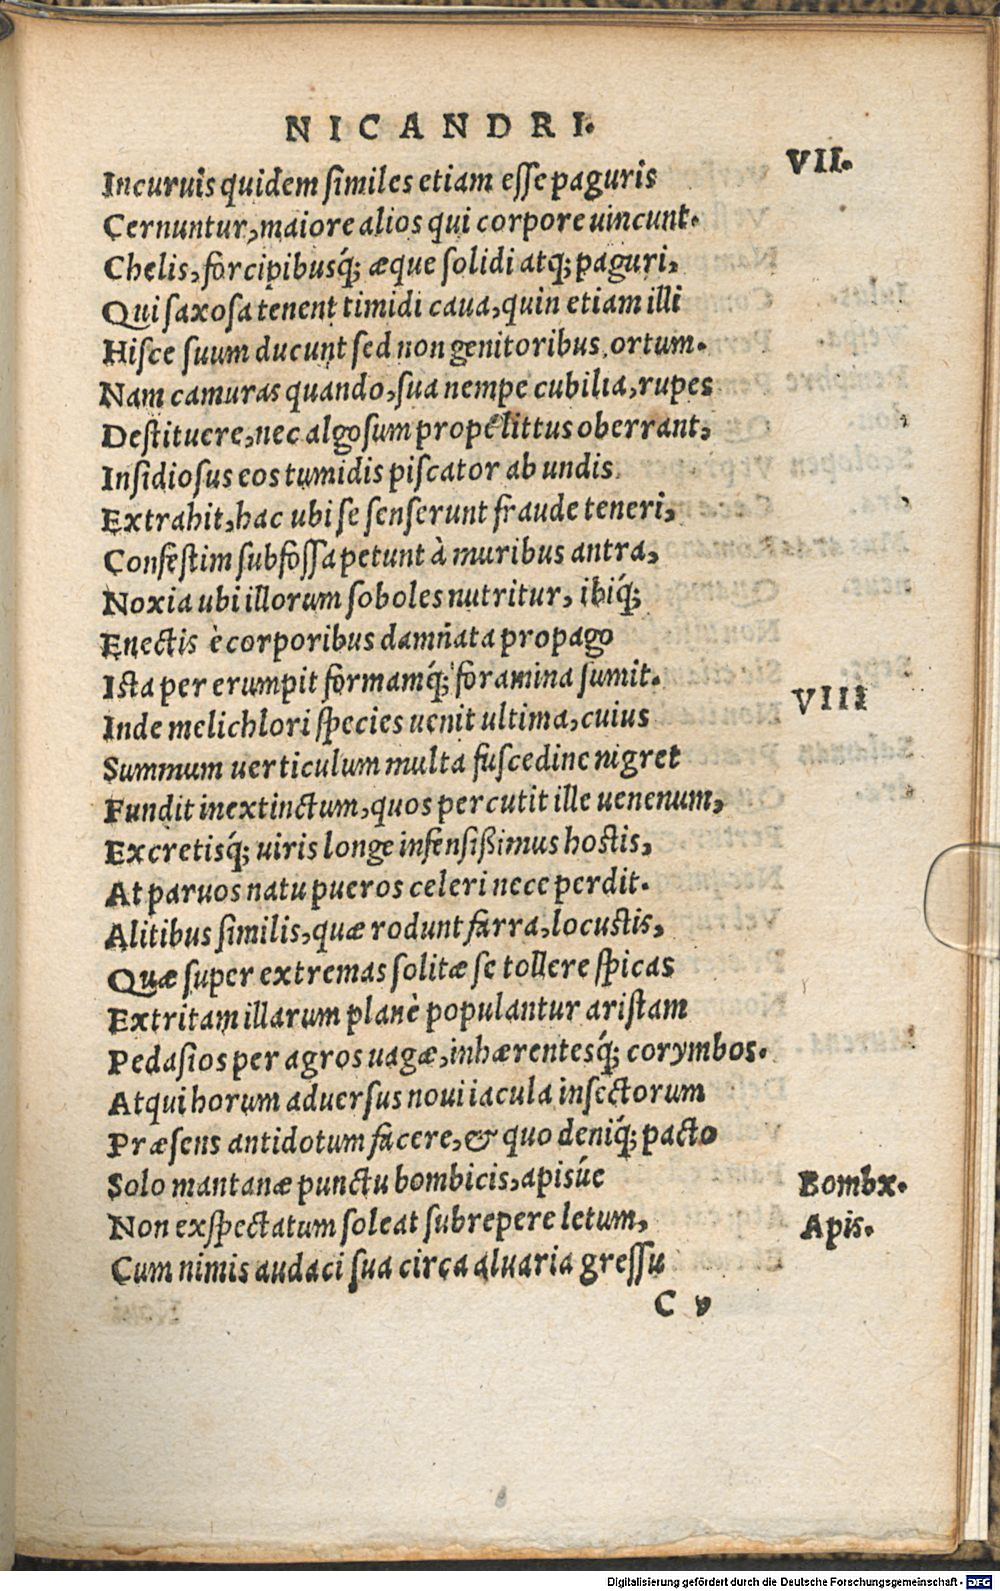 NICANDRI.
VII.
Incuruis quidem ſimiles etiam eſſe paguris
Cernuntur, maiore alios qui corpore uincunt.
Chelis, forcipibusq́; æque ſolidi atq; paguri,
Qui ſaxoſa tenent timidi caua, quin etiam illi
Hiſce ſuum ducunt ſed non genitoribus ortum.
Nam camuras quando, ſua nempe cubilia, rupes
Deſtituere, nec algoſum propè littus oberrant,
Inſidioſus eos tumidis piſcator ab undis
Extrahit, hac ubi ſe ſenſerunt fraude teneri,
Confeſtim ſubfoſſa petunt à muribus antra,
Noxia ubi illorum ſoboles nutritur, ibiq́;
Enectis è corporibus damñata propago
Iſta per erumpit formamq́; foramina ſumit.
VIII
Inde melichlori ſpecies uenit ultima, cuius
Summum uerticulum multa fuſcedine nigret
Fundit inextinctum, quos percutit ille uenenum,
Excretisq́; uiris longe infenſißimus hostis,
At paruos natu pueros celeri nece perdit.
Alitibus ſimilis, quæ rodunt farra, locuſtis,
Quæ ſuper extremas ſolitæ ſe tollere ſpicas
Extritam illarum planè populantur ariſtam
Pedaſios per agros uagæ, inhærentesq́; corymbos.
Atqui horum aduerſus noui iacula inſectorum
Præſens antidotum facere, & quo deniq́; pacto
Solo mantanæ punctu bombicis, apisúe
Bombx.
Non exſpectatum ſoleat ſubrepere letum,
Apis.
Cum nimis audaci ſua circa aluaria greſſu
C v
Digitalisierung gefördert durch die Deutsche Forschungsgemeinschaft - DFG